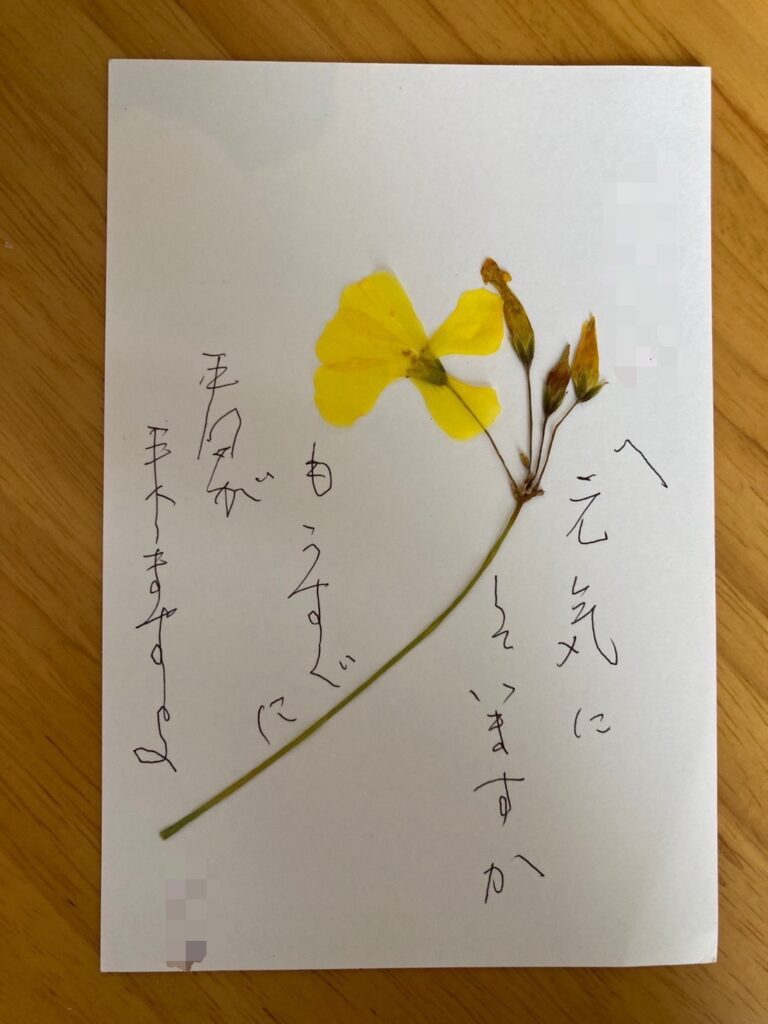 へ
元気に
していますか
もうすぐに
春が
来ます